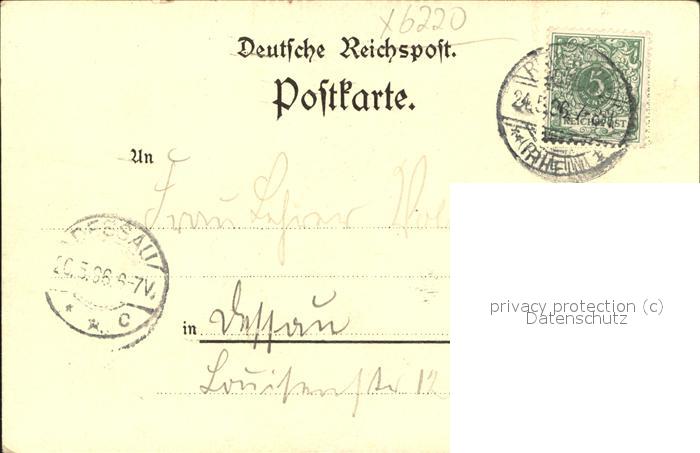 x6220
Deutsche Reichspost.
Postkarte.
5
REICHSPOST
24.5.96
(RHEIN)
An
Frau Lehrer
DESSAU
26.5.96.6-7V.
* * C
in Dessau
Louisenstr 12
privacy protection (c)
Datenschutz